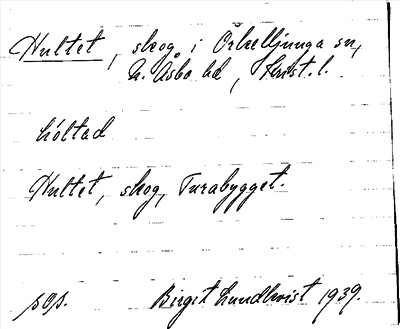 Hultet, skog i Örkelljunga sn,
N. Åsbo hd, Krist. l.
hóltad
Hultet, skog, Turabygget.
sqs.
Birgit Lundkvist 1939.